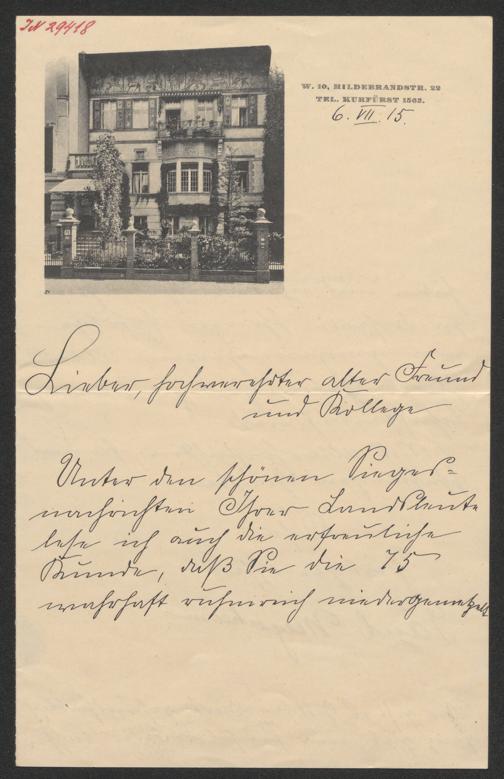 IN 29418
W. 10, HILDEBRANDSTR. 22
TEL. KURFÜRST 1562.
6. VII. 15.
Lieber, hochverehrter alter Freund
und Kollege
Unter den schönen Sieges-
nachrichten Ihrer Landsleute
lese ich auch die erfreuliche
Kunde, daß Sie die 75
wahrhaft ruhmreich niedergemetzelt